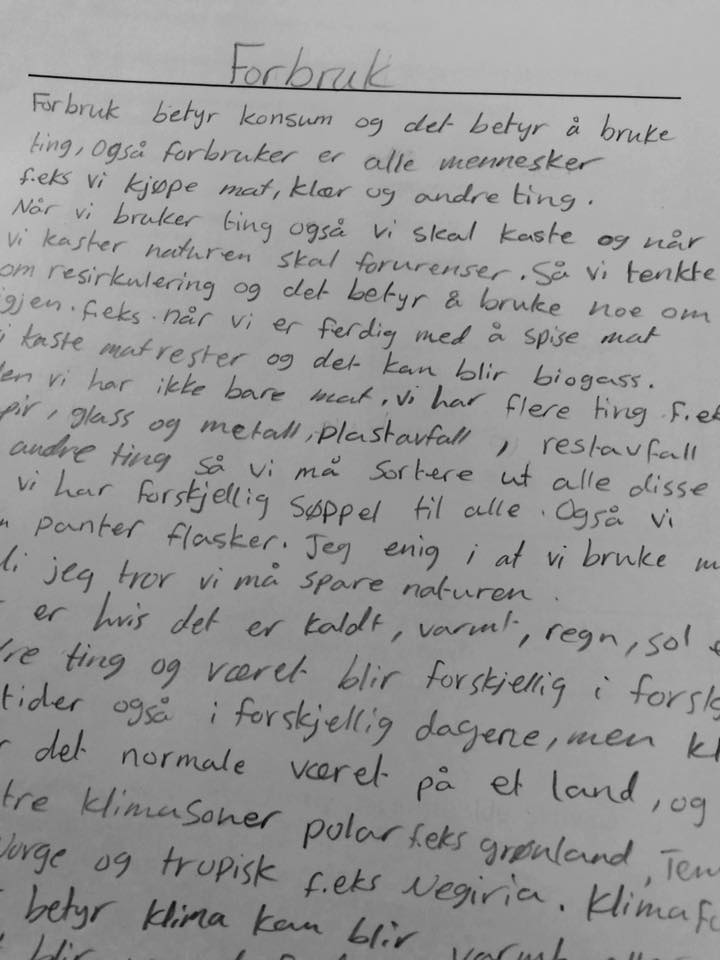 Forbruk
Forbruk betyr konsum og det betyr å bruke
ting, også forbruker er alle mennesker
f.eks vi kjøpe mat, klær og andre ting.
Når vi bruker ting også vi skal kaste og når
vi kaster naturen skal forurenser. Så vi tenkte
om resirkulering og det betyr å bruke noe om
igjen. f.eks. når vi er ferdig med å spise mat
i kaste matrester og det kan blir biogass.
en vi har ikke bare mat, vi har flere ting f.ek
pir, glass og metall, plastavfall, restavfall
andre ting så vi må sortere ut alle disse
vi har forskjellig søppel til alle. Også vi
n panter flasker. Jeg enig i at vi bruke m
di jeg tror vi må spare naturen.
er hvis det er kaldt, varmt, regn, sol e
re ting og været blir forskjellig i forskj
tider også i forskjellig dagene, men kl
r det normale været på et land, og
tre klimasoner polar f.eks grønland, Tem
Norge og trupisk f.eks Negiria. Klimafo
betyr klima kan blir
blir varmt